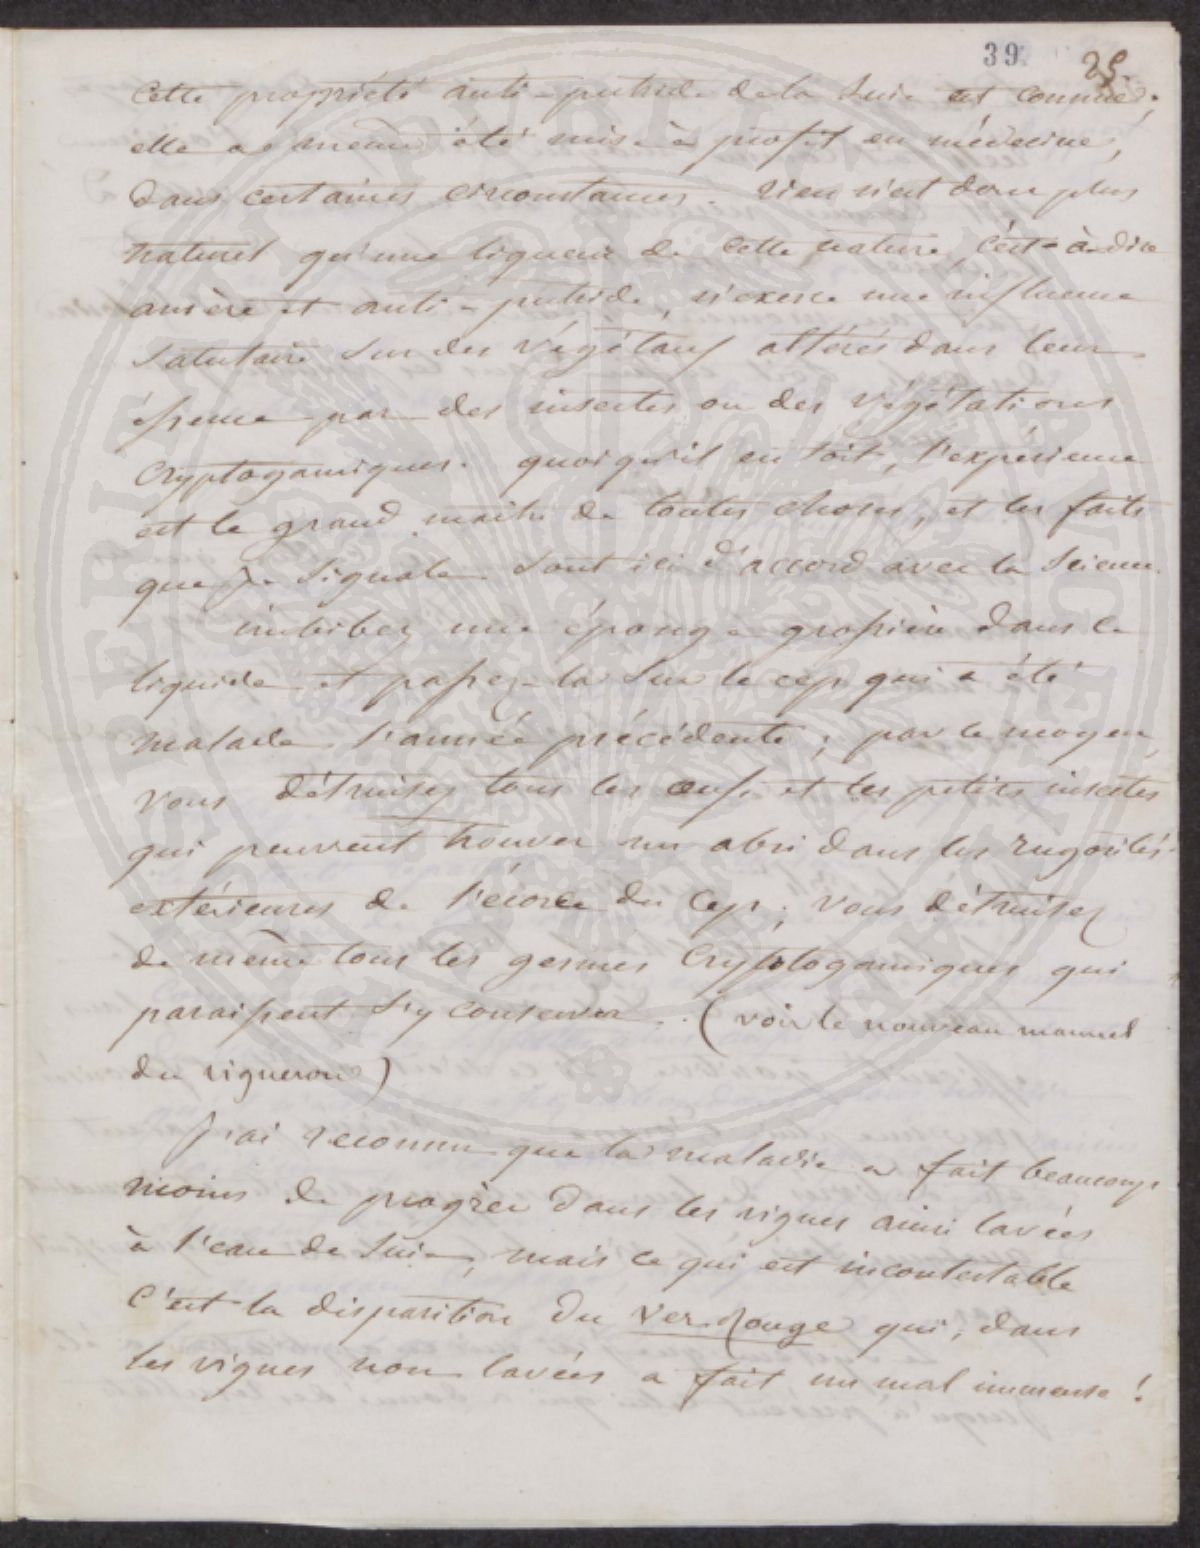 39. 25.
Cette propriété anti-putride de la Suie est connue;
elle a même été mise à profit en médecine,
dans certaines circonstances. rien n'est donc plus
naturel qu'une liqueur de cette nature, c'est-à-dire
amère et anti-putride, n'exerce une influence
Salutaire Sur des végétaux altérés dans leur
essence par des insectes ou des végétations
Cryptogamiques. quoiqu'il en soit, l'expérience
est le grand maître de toutes choses, et les faits
que je Signale Sont ici d'accord avec la Science.
imbibez une éponge grossière dans le
liquide et passez-la Sur le cep qui a été
malade l'année précédente; par ce moyen,
vous détruisez tous les œufs et les petits insectes
qui peuvent trouver un abri dans les rugosités
extérieures de l'écorce du Cep; vous détruisez
de même tous les germes Cryptogamiques qui
paraissent s'y conserver. (voir le nouveau manuel
du vigneron)
J'ai reconnu que la maladie a fait beaucoup
moins de progrès dans les vignes ainsi lavées
à l'eau de Suie, mais ce qui est incontestable
C'est la disparition du Ver-Rouge qui, dans
les vignes non lavées a fait un mal immense!
SPERIT PVBLICVM